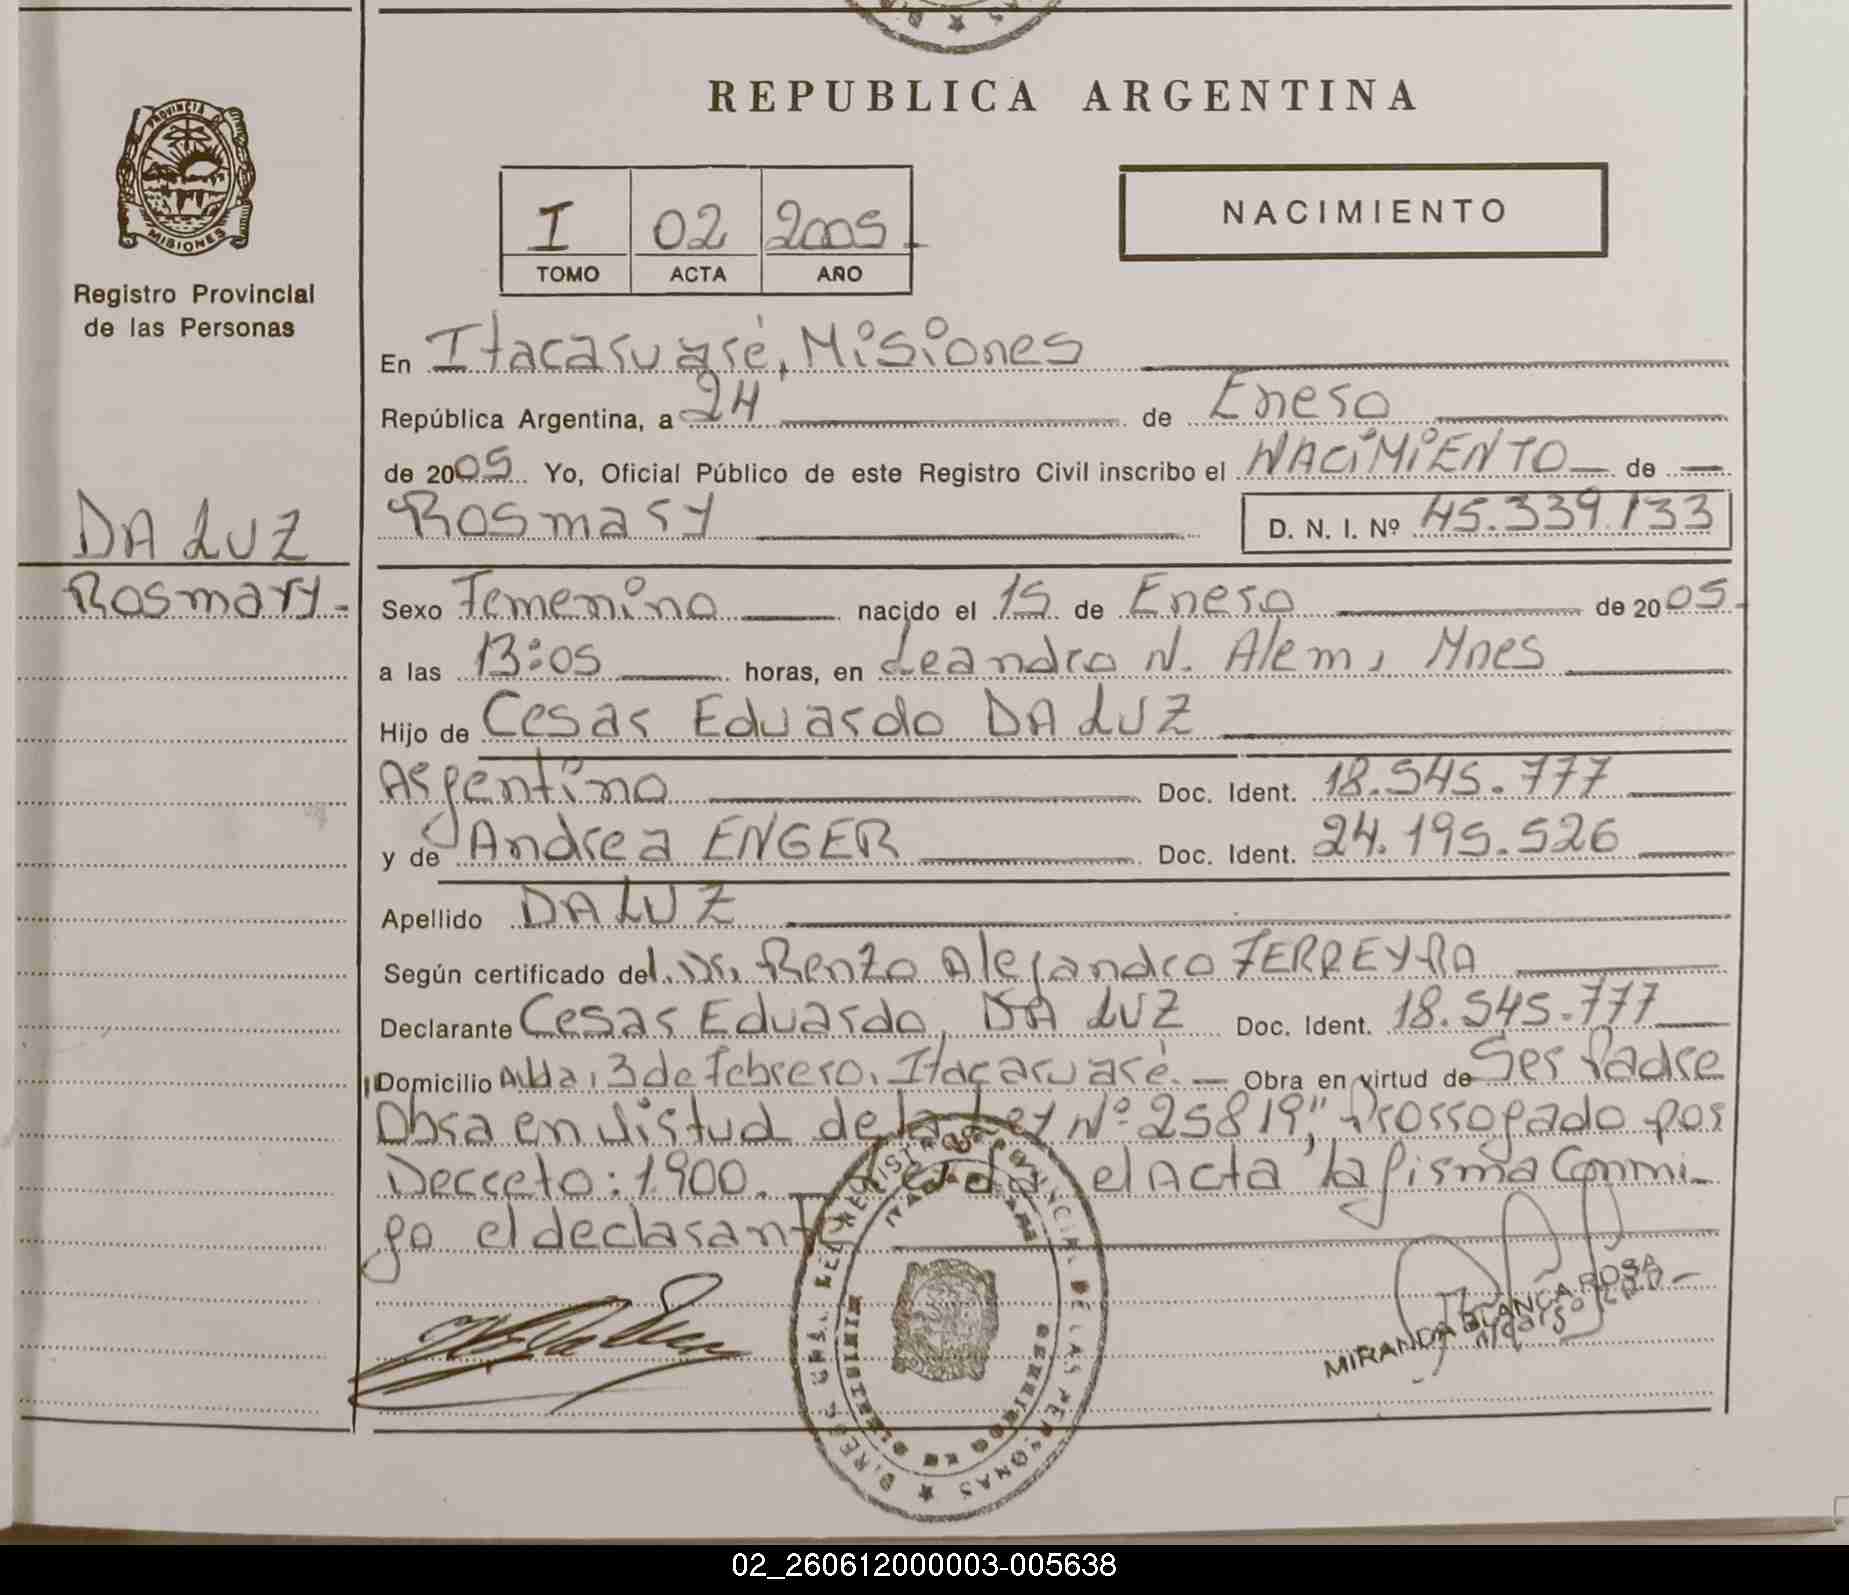 REPUBLICA ARGENTINA
PROVINCIA DE
MISIONES
Registro Provincial
de las Personas
I 02 2005
TOMO ACTA AÑO
NACIMIENTO
En Itacaruaré, Misiones
República Argentina, a 24 de Enero
de 2005 Yo, Oficial Público de este Registro Civil inscribo el NACIMIENTO de
DA LUZ
Rosmary
Rosmary D. N. I. Nº 45.339.133
Sexo Femenino nacido el 15 de Enero de 2005.
a las 13:05 horas, en Leandro N. Alem, Mnes
Hijo de Cesar Eduardo DA LUZ
Argentino Doc. Ident. 18.545.777
y de Andrea ENGER Doc. Ident. 24.195.526
Apellido DA LUZ
Según certificado del Dr. Renzo Alejandro FERREYRA
Declarante Cesar Eduardo, DA LUZ Doc. Ident. 18.545.777
Domicilio Avda, 3 de Febrero, Itacaruaré. Obra en virtud de Ser Padre
Obra en virtud de la Ley Nº 25819," Prorrogado por
Decreto: 1.900. el Acta la firma Conmi-
go el declarante
MIRANDA BLANCA ROSA
02_260612000003-005638